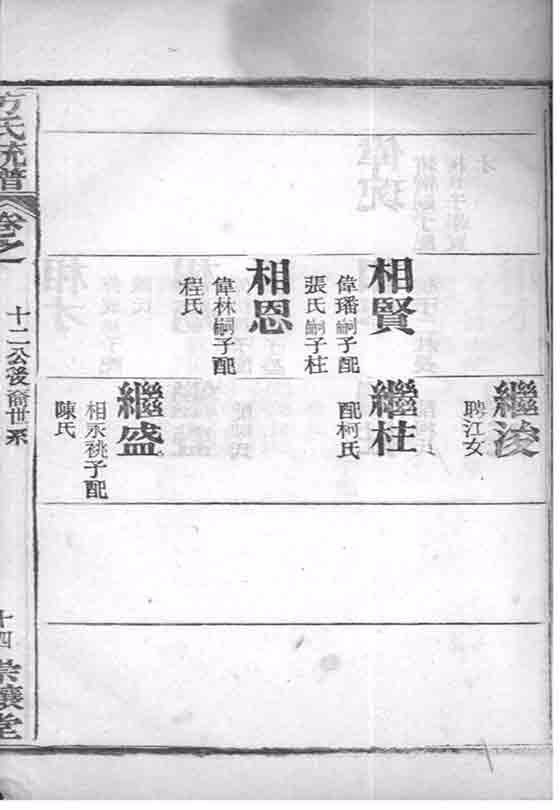 相賢
偉璠嗣子配
張氏嗣子柱
相恩
偉林嗣子配
程氏
繼浚
聘江女
繼柱
配柯氏
繼盛
相永祧子配
陳氏
方氏統譜
卷之一
十二公後裔世系
十四